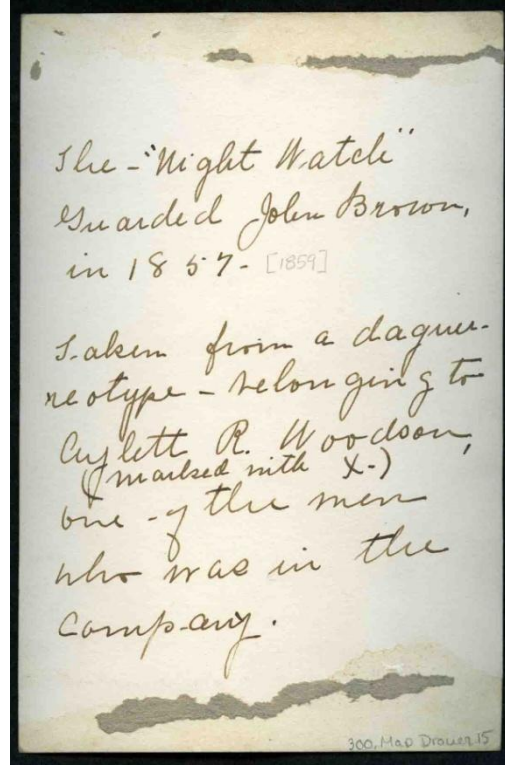 The - "Night Watch"
Guarded John Brown,
in 1857- [1859]
Taken from a daguer-
reotype - belonging to
Aylett R. Woodson,
(marked with X-)
one - of the men
who was in the
company.
300, Map Drawer 15